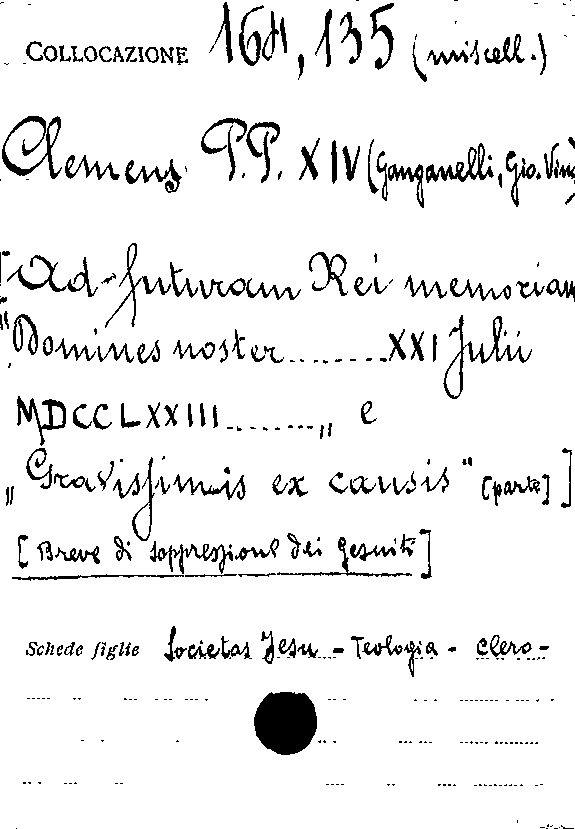 COLLOCAZIONE 164, 135 (miscell.)
Clemens P.P. XIV (Ganganelli, Gio. Vin
[Ad futuram Rei memoriam
"Domines noster ........ XXI Julii
MDCCLXXIII ........ „ e
„Gravissimis ex causis" [parte] ]
[Breve di soppressione dei gesuiti]
Schede figlie Societas Jesu - Teologia - Clero -